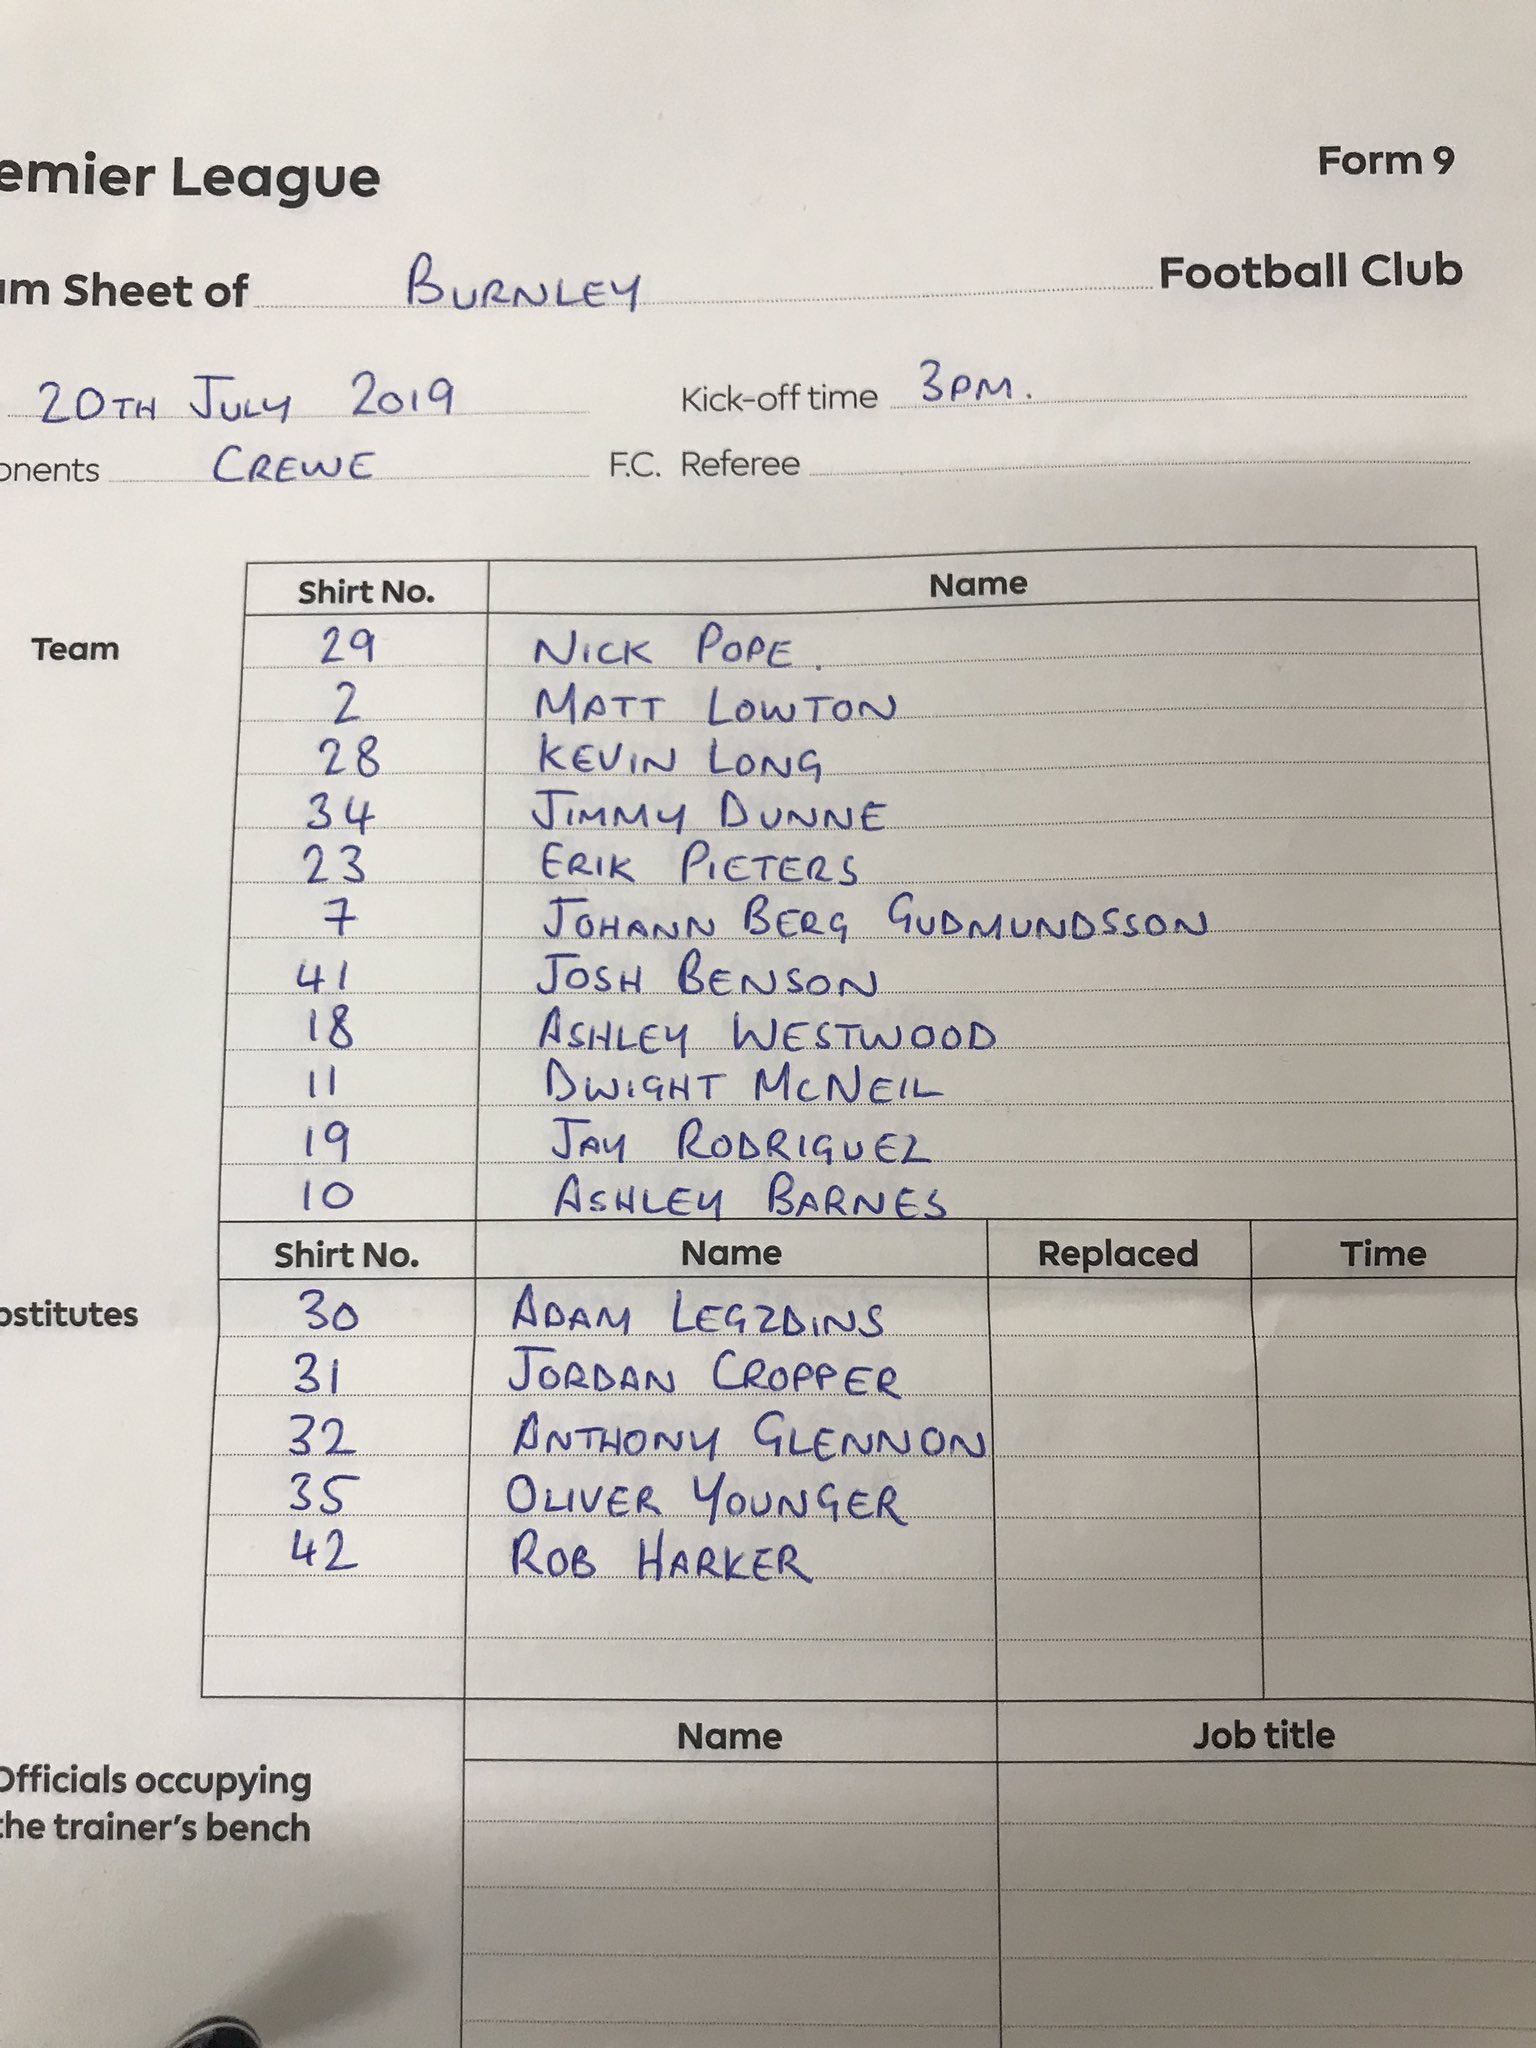 emier League
Form 9
am Sheet of BURNLEY Football Club
20TH JULY 2019 Kick-off time 3PM.
onents CREWE F.C. Referee
Shirt No. Name
Team 29 NICK POPE.
2 MATT LOWTON
28 KEVIN LONG
34 JIMMY DUNNE
23 ERIK PIETERS
7 JOHANN BERG GUDMUNDSSON
41 JOSH BENSON
18 ASHLEY WESTWOOD
11 DWIGHT MCNEIL
19 JAY RODRIGUEZ
10 ASHLEY BARNES
Shirt No. Name Replaced Time
ostitutes 30 ADAM LEGZDINS
31 JORDAN CROPPER
32 ANTHONY GLENNON
35 OLIVER YOUNGER
42 ROB HARKER
Name Job title
Officials occupying
the trainer's bench